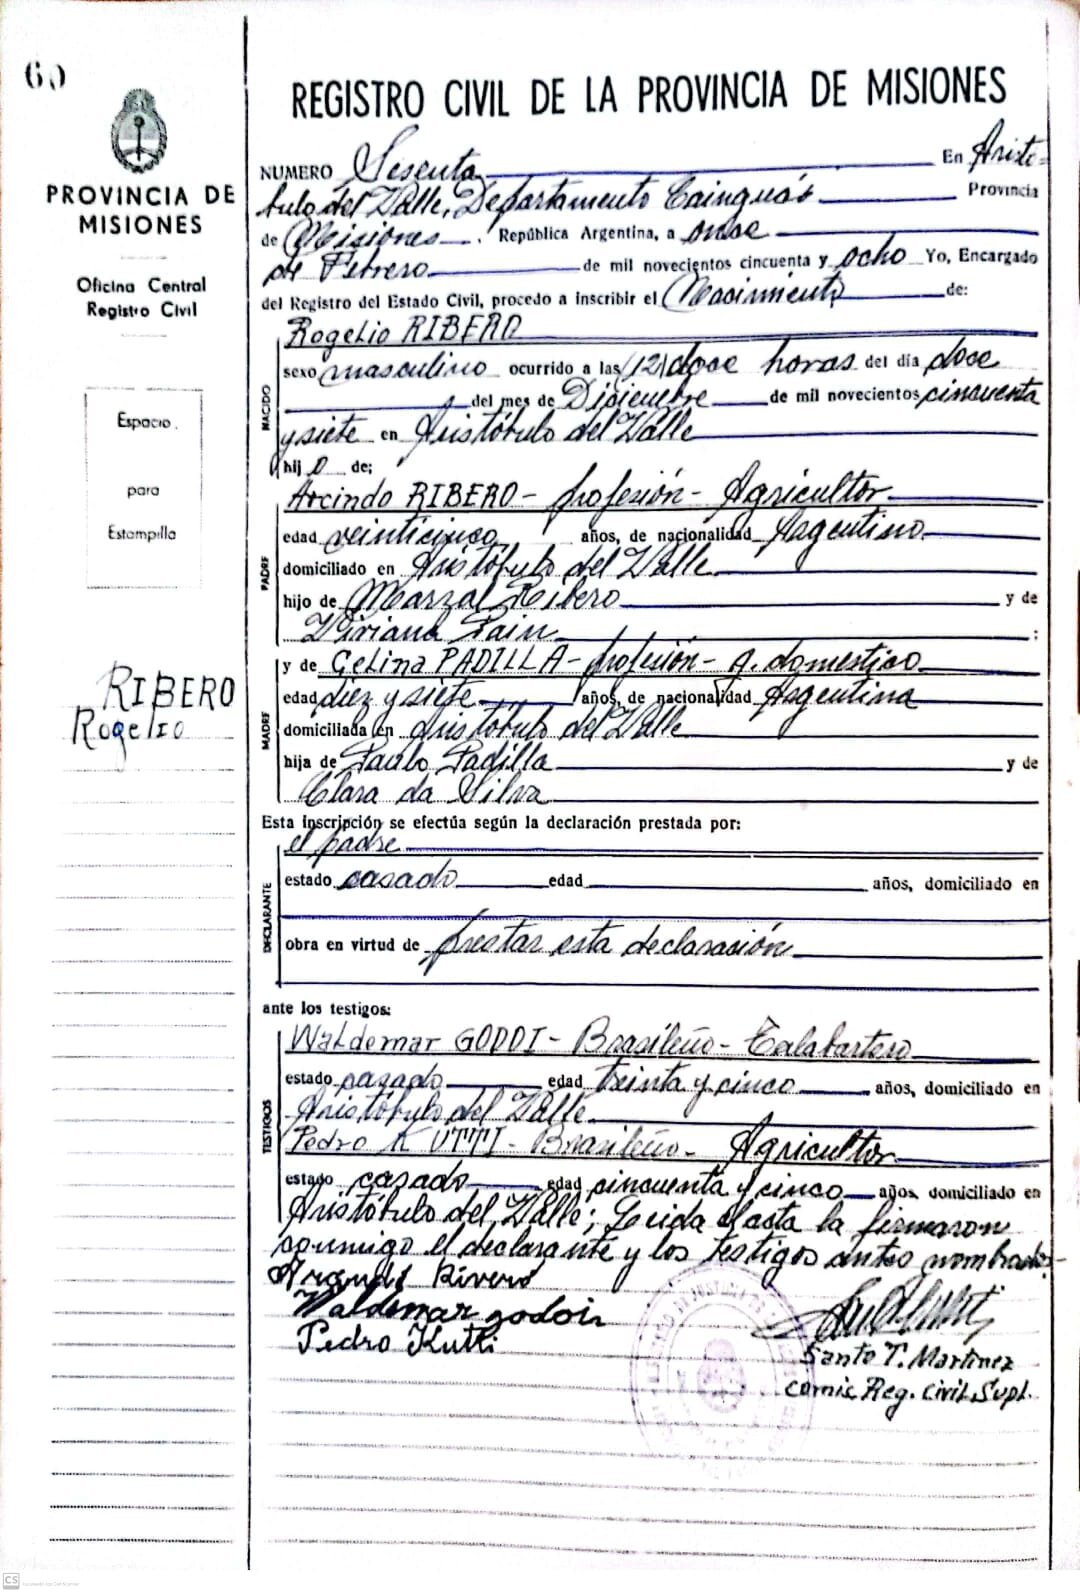 60
PROVINCIA DE
MISIONES
Oficina Central
Registro Civil
Espacio
para
Estampilla
RIBERO
Rogelio
REGISTRO CIVIL DE LA PROVINCIA DE MISIONES
NUMERO Sesenta En Aristó-
bulo del Valle, Departamento Cainguás Provincia
de Misiones, República Argentina, a once
de Febrero de mil novecientos cincuenta y ocho Yo, Encargado
del Registro del Estado Civil, procedo a inscribir el Nacimiento de:
NACIDO
Rogelio RIBERO
sexo masculino ocurrido a las (12) doce horas del día doce
del mes de Diciembre de mil novecientos cincuenta
y siete en Aristóbulo del Valle
hijo de;
PADRE
Arcindo RIBERO - profesión - Agricultor
edad veinticinco años, de nacionalidad Argentino
domiciliado en Aristóbulo del Valle
hijo de Marzal Ribero y de
Viriana Pain :
MADRE
y de Gelina PADILLA - profesión - q. domestico
edad diez y siete años, de nacionalidad Argentina
domiciliada en Aristóbulo del Valle
hija de Paulo Padilla y de
Clara da Silva
Esta inscripción se efectúa según la declaración prestada por:
DECLARANTE
el padre
estado casado edad años, domiciliado en
obra en virtud de prestar esta declaración
ante los testigos:
TESTIGOS
Waldemar GODOI - Brasileño - Talabartero
estado casado edad treinta y cinco años, domiciliado en
Aristóbulo del Valle
Pedro KUTTI - Brasileño - Agricultor
estado casado edad cincuenta y cinco años, domiciliado en
Aristóbulo del Valle; Leida el acta la firmaron
conmigo el declarante y los testigos antes nombrados-
Rivero
Waldemar godoi
Pedro Kutti
Santo T. Martinez
comic Reg. Civil Supl.
CS